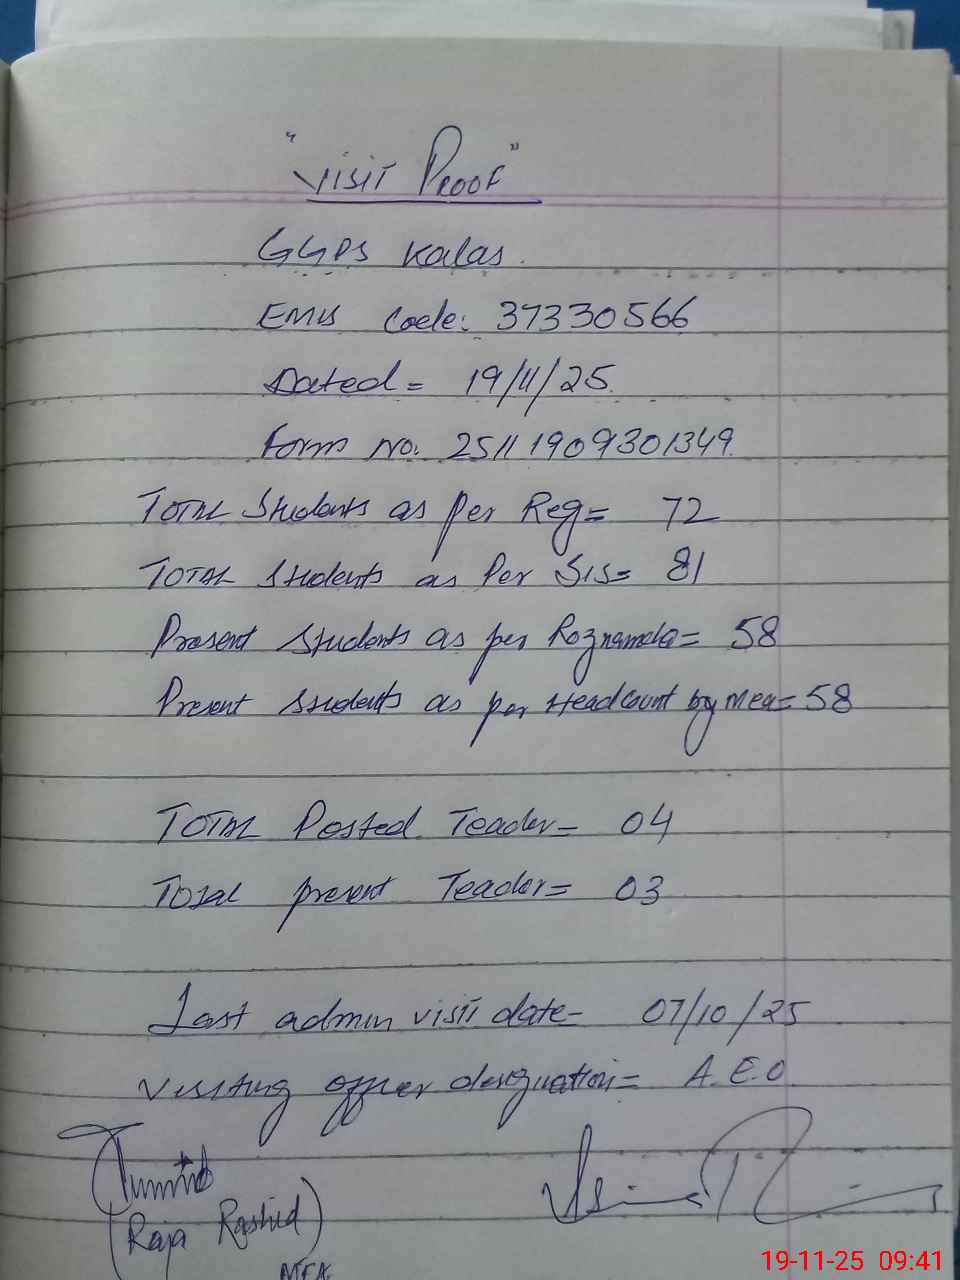 "Visit Proof"
GGPS Kalas.
EMIS Code: 37330566
Dated = 19/11/25.
Form No. 2511 1909301349.
Total Students as per Reg = 72
Total Students as Per SIS = 81
Present Students as per Roznamcha = 58
Present Students as per Headcount by Mea = 58
Total Posted Teacher = 04
Total present Teacher = 03
Last admin visit date = 07/10/25
Visiting officer designation = A.E.O
(Raja Rashid)
MEA
19-11-25 09:41